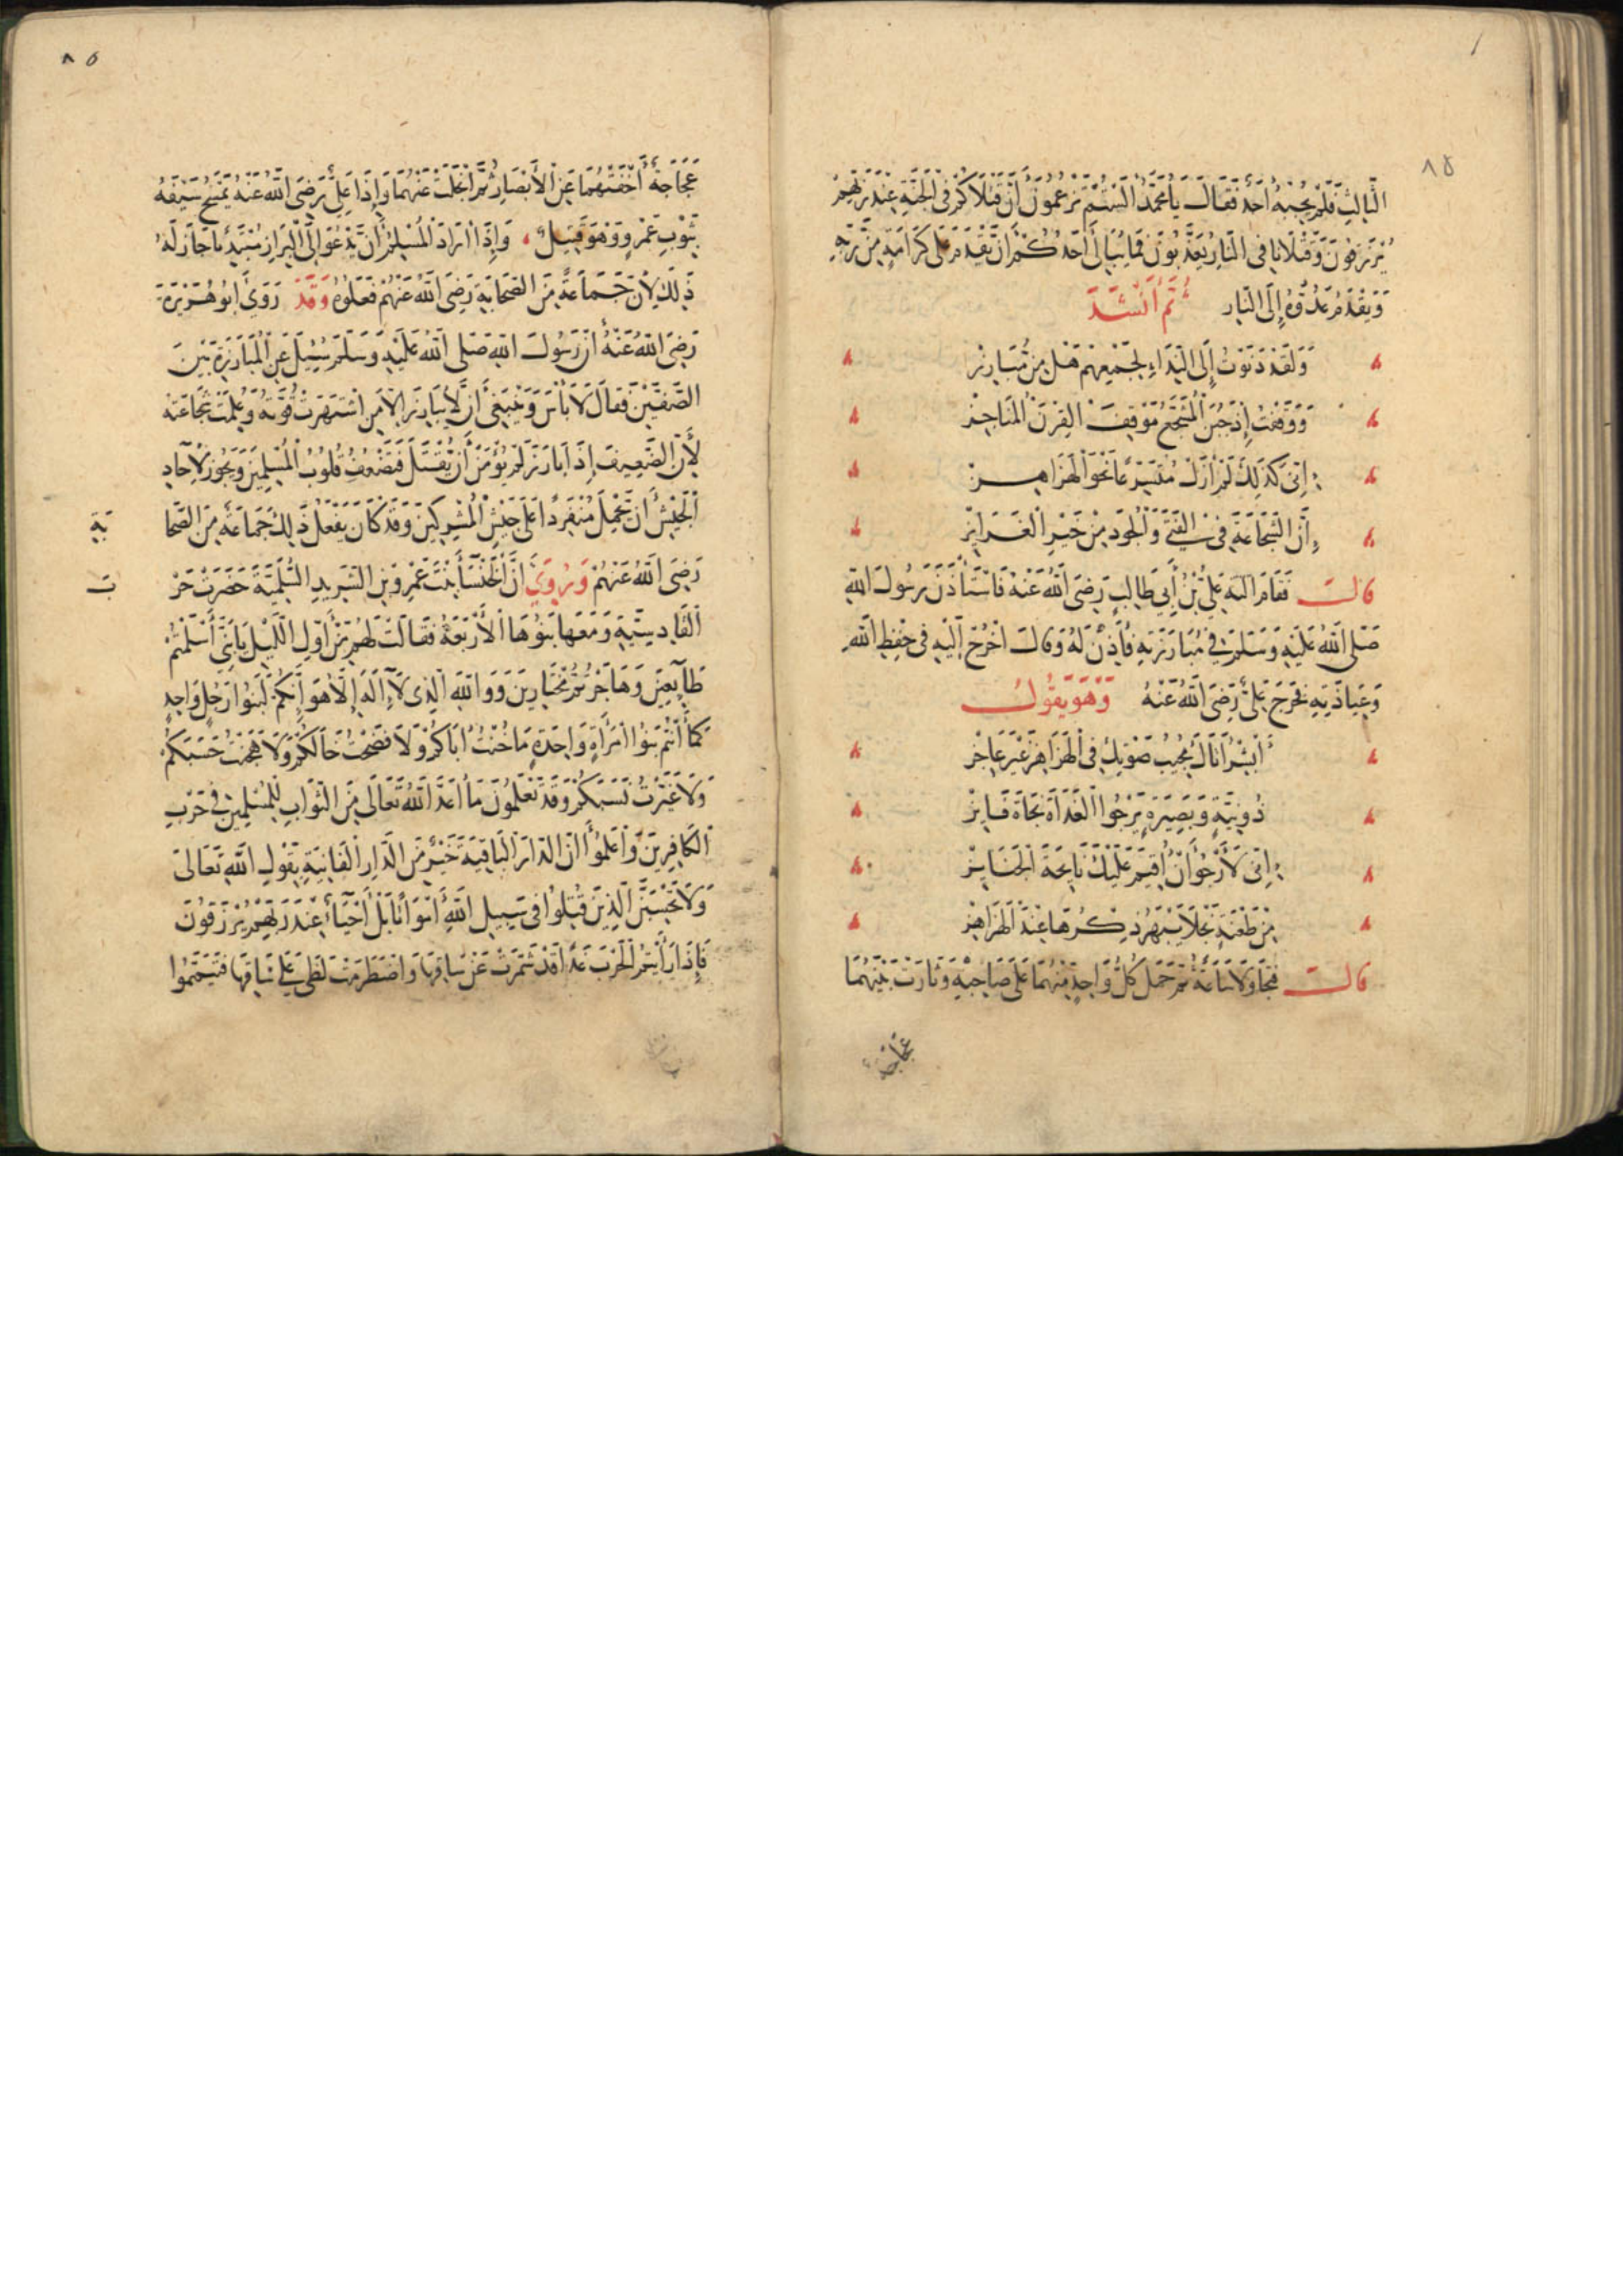 ٨٤
الثالث فلم يجبه أحد فقال يا محمد ألستم تزعمون أن قتلاكم في الجنة عند ربهم
يرزقون وقتلانا في النار يعذبون فما يبالى أحدكم أن يقدم على كرامة من ربه
ويقدم عدوه إلى النار ثم أنشد
ولقد دنوت إلى النداء لجمعهم هل من مبارز
ووقفت إذ جبن المشجع موقف القرن المناجز
إني كذلك لم أزل متسرعا نحو الهزاهز
إن الشجاعة في الفتى والجود من خير الغرائز
قال فقام اليه علي بن أبي طالب رضى الله عنه فاستأذن رسول الله
صلى الله عليه وسلم في مبارزته فأذن له وقال اخرج اليه في حفظ الله
وعياذته فخرج علي رضى الله عنه وهو يقول
أبشر أتاك مجيب صوتك في الهزاهز غير عاجز
ذو نية وبصيرة يرجوا الغداة نجاة فايز
إني لأرجو أن أقيم عليك نايحة الجنايز
من طعنة نجلا يبهر ذكرها عند الهزاهز
قال فتجاولا ساعة ثم حمل كل واحد منهما على صاحبه وثارت بينهما
عجاجة
٨٥
عجاجة أخفتهما عن الأبصار ثم انجلت عنهما وإذا علي رضى الله عنه يمسح سيفه
بثوب عمرو وهو قتيل وإذا أراد المسلم أن يدعوا إلى البراز مبتدئا جاز له
ذلك لأن جماعة من الصحابة رضى الله عنهم فعلوه وقد روى ابو هريرة
رضى الله عنه أن رسول الله صلى الله عليه وسلم سئل عن المبارزة بين
الصفين فقال لا بأس وينبغي أن لا يبارز الا من اشتهرت قوته وعلمت شجاعته
لأن الضعيف إذا بارز لم يؤمن أن يقتل فتضعف قلوب المسلمين ويجوز لآحاد
الجيش أن يحمل منفردا على جيش المشركين وقد كان يفعل ذلك جماعة من الصحا
بة
رضى الله عنهم وروي ان الخنسا بنت عمرو بن الشريد السلمية حضرت حر
ب
القادسية ومعها بنوها الأربعة فقالت لهم من أول الليل يا بني أسلمتم
طايعين وهاجرتم مختارين ووالله الذى لا إله إلا هو إنكم لبنوا رجل واحد
كما أنتم بنوا امرأة واحدة ما خنت اباكم ولا فضحت خالكم ولا هجنت حسبكم
ولا غيرت نسبكم وقد تعلمون ما اعد الله تعالى من الثواب للمسلمين في حرب
الكافرين واعلموا أن الدار الباقية خير من الدار الفانية بقول الله تعالى
ولا تحسبن الذين قتلوا في سبيل الله أمواتا بل أحياء عند ربهم يرزقون
فإذا رأيتم الحرب غدا قد شمرت عن ساقها واضطرمت لظى على ساقها فتيمموا